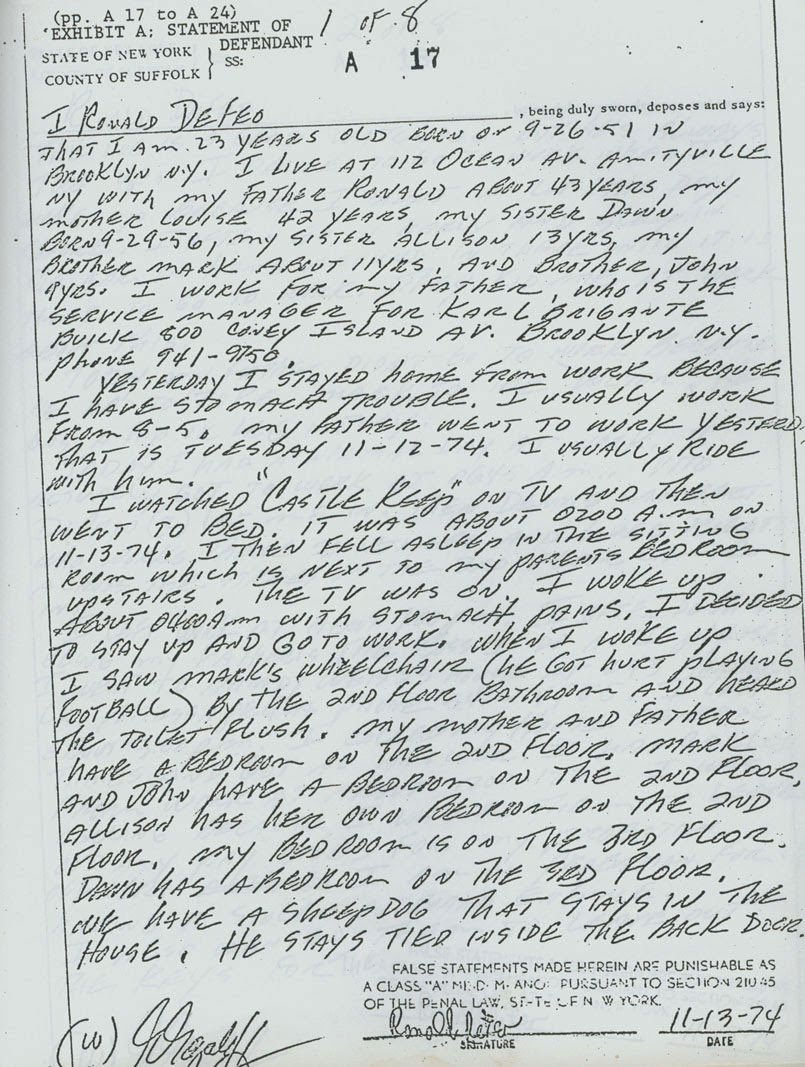 (pp. A 17 to A 24)
EXHIBIT A; STATEMENT OF DEFENDANT
1 OF 8
STATE OF NEW YORK
COUNTY OF SUFFOLK
SS:
A 17
I RONALD DEFEO, being duly sworn, deposes and says:
THAT I AM 23 YEARS OLD BORN ON 9-26-51 IN
BROOKLYN N.Y. I LIVE AT 112 OCEAN AV. AMITYVILLE
NY WITH MY FATHER RONALD ABOUT 43 YEARS, MY
MOTHER LOUISE 42 YEARS, MY SISTER DAWN
BORN 9-29-56, MY SISTER ALLISON 13 YRS, MY
BROTHER MARK ABOUT 11 YRS, AND BROTHER, JOHN
9 YRS. I WORK FOR MY FATHER, WHO IS THE
SERVICE MANAGER FOR KARL BRIGANTE
BUICK 800 CONEY ISLAND AV. BROOKLYN N.Y.
PHONE 941-9750.
YESTERDAY I STAYED HOME FROM WORK BECAUSE
I HAVE STOMACH TROUBLE. I USUALLY WORK
FROM 8-5. MY FATHER WENT TO WORK YESTERD
THAT IS TUESDAY 11-12-74. I USUALLY RIDE
WITH HIM.
I WATCHED "CASTLE KEEP" ON TV AND THEN
WENT TO BED. IT WAS ABOUT 0200 A.M ON
11-13-74. I THEN FELL ASLEEP IN THE SITTING
ROOM WHICH IS NEXT TO MY PARENTS BEDROOM
UPSTAIRS. THE TV WAS ON. I WOKE UP
ABOUT 0400 AM WITH STOMACH PAINS. I DECIDED
TO STAY UP AND GO TO WORK. WHEN I WOKE UP
I SAW MARK'S WHEELCHAIR (HE GOT HURT PLAYING
FOOTBALL) BY THE 2ND FLOOR BATHROOM AND HEARD
THE TOILET FLUSH. MY MOTHER AND FATHER
HAVE A BEDROOM ON THE 2ND FLOOR, MARK
AND JOHN HAVE A BEDROOM ON THE 2ND FLOOR,
ALLISON HAS HER OWN BEDROOM ON THE 2ND
FLOOR. MY BEDROOM IS ON THE 3RD FLOOR.
DAWN HAS A BEDROOM ON THE 3RD FLOOR.
WE HAVE A SHEEPDOG THAT STAYS IN THE
HOUSE. HE STAYS TIED INSIDE THE BACK DOOR.
FALSE STATEMENTS MADE HEREIN ARE PUNISHABLE AS
A CLASS "A" PURSUANT TO SECTION 210.45
OF THE PENAL LAW, YORK.
(W)
Ronald Defeo 11-13-74
SIGNATURE DATE